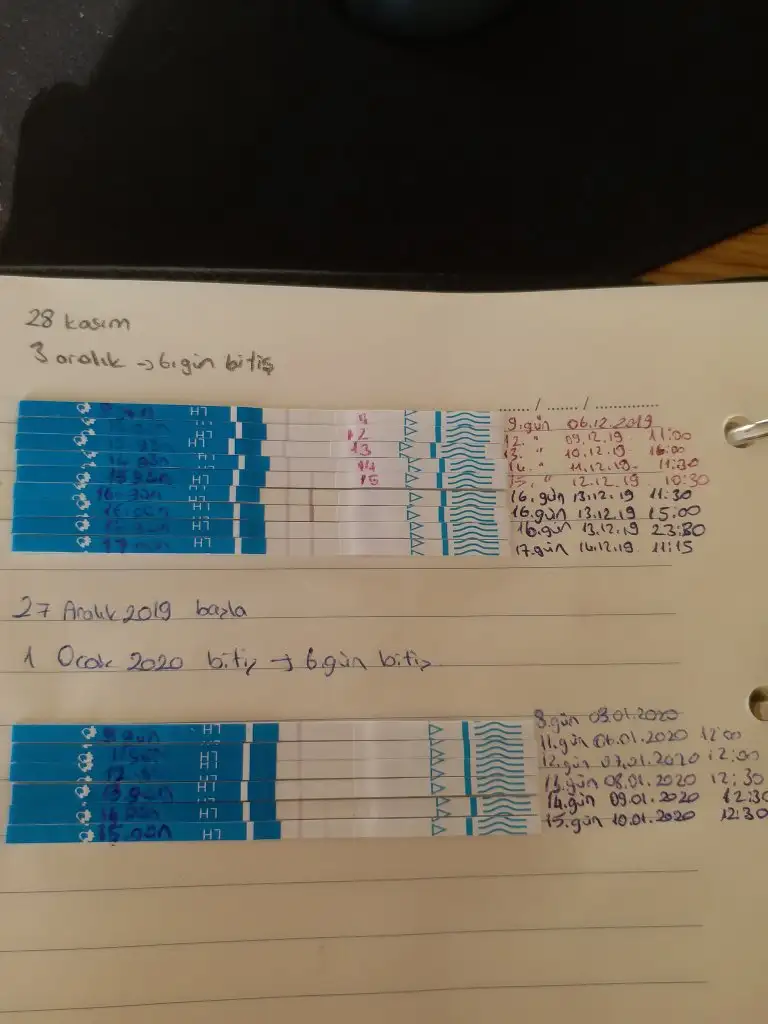 28 kasım
3 aralık → 6.gün bitiş
...... / ...... / ............
9.gün 06.12.2019
12. " 09.12.19 11:00
13. " 10.12.19 16:00
14. " 11.12.19 11:30
15. " 12.12.19 10:30
16.gün 13.12.19 11:30
16.gün 13.12.19 15:00
16.gün 13.12.19 23:30
17.gün 14.12.19 11:15
LH
LH
LH
LH
LH
LH
LH
9
12
13
14
15
16.gün
27 Aralık 2019 başla
1 Ocak 2020 bitiş → 6.gün bitiş
8.gün 03.01.2020
11.gün 06.01.2020 12:00
12.gün 07.01.2020 12:00
13.gün 08.01.2020 12:30
14.gün 09.01.2020 12:30
15.gün 10.01.2020 12:30
LH
LH
LH
LH
LH
13.gün
15.gün